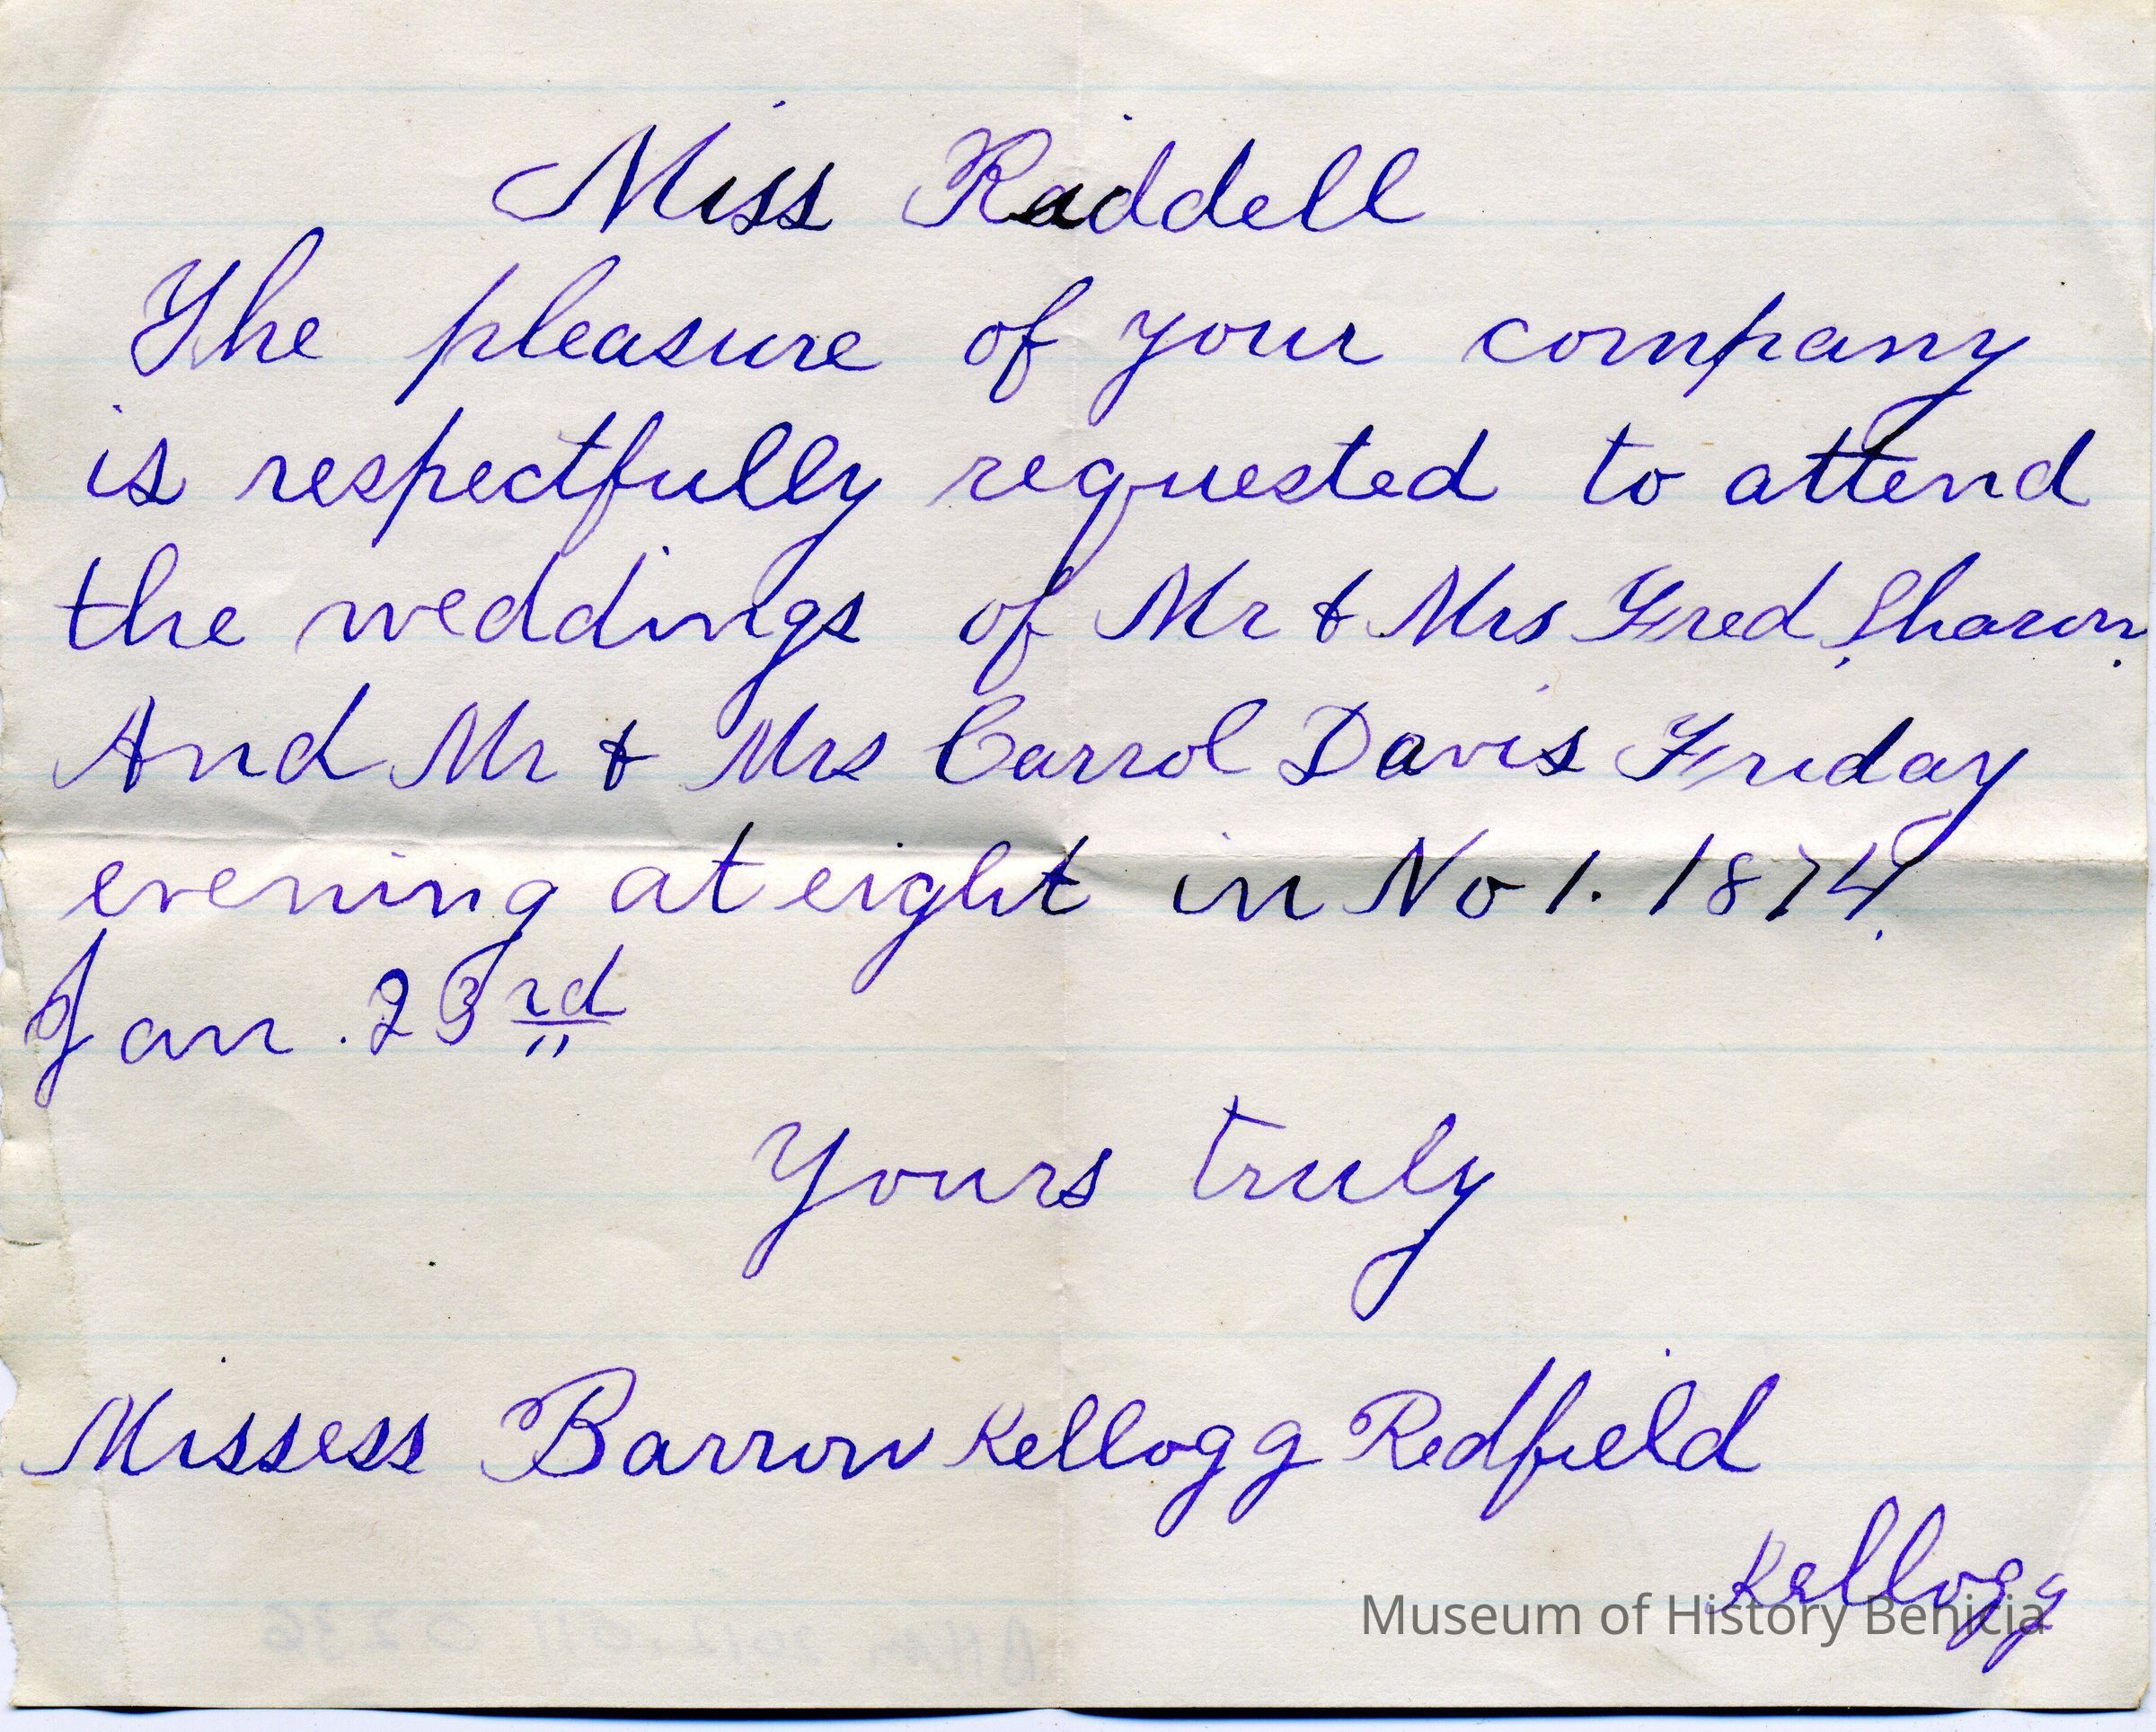 Miss Raddell
The pleasure of your company
is respectfully requested to attend
the weddings of Mr & Mrs Fred Sharon.
And Mr & Mrs Carrol Davis Friday
evening at eight in No 1. 1874.
Jan. 23rd
Yours truly
Missess Barron Kellogg Redfield
Kellogg
Museum of History Benicia